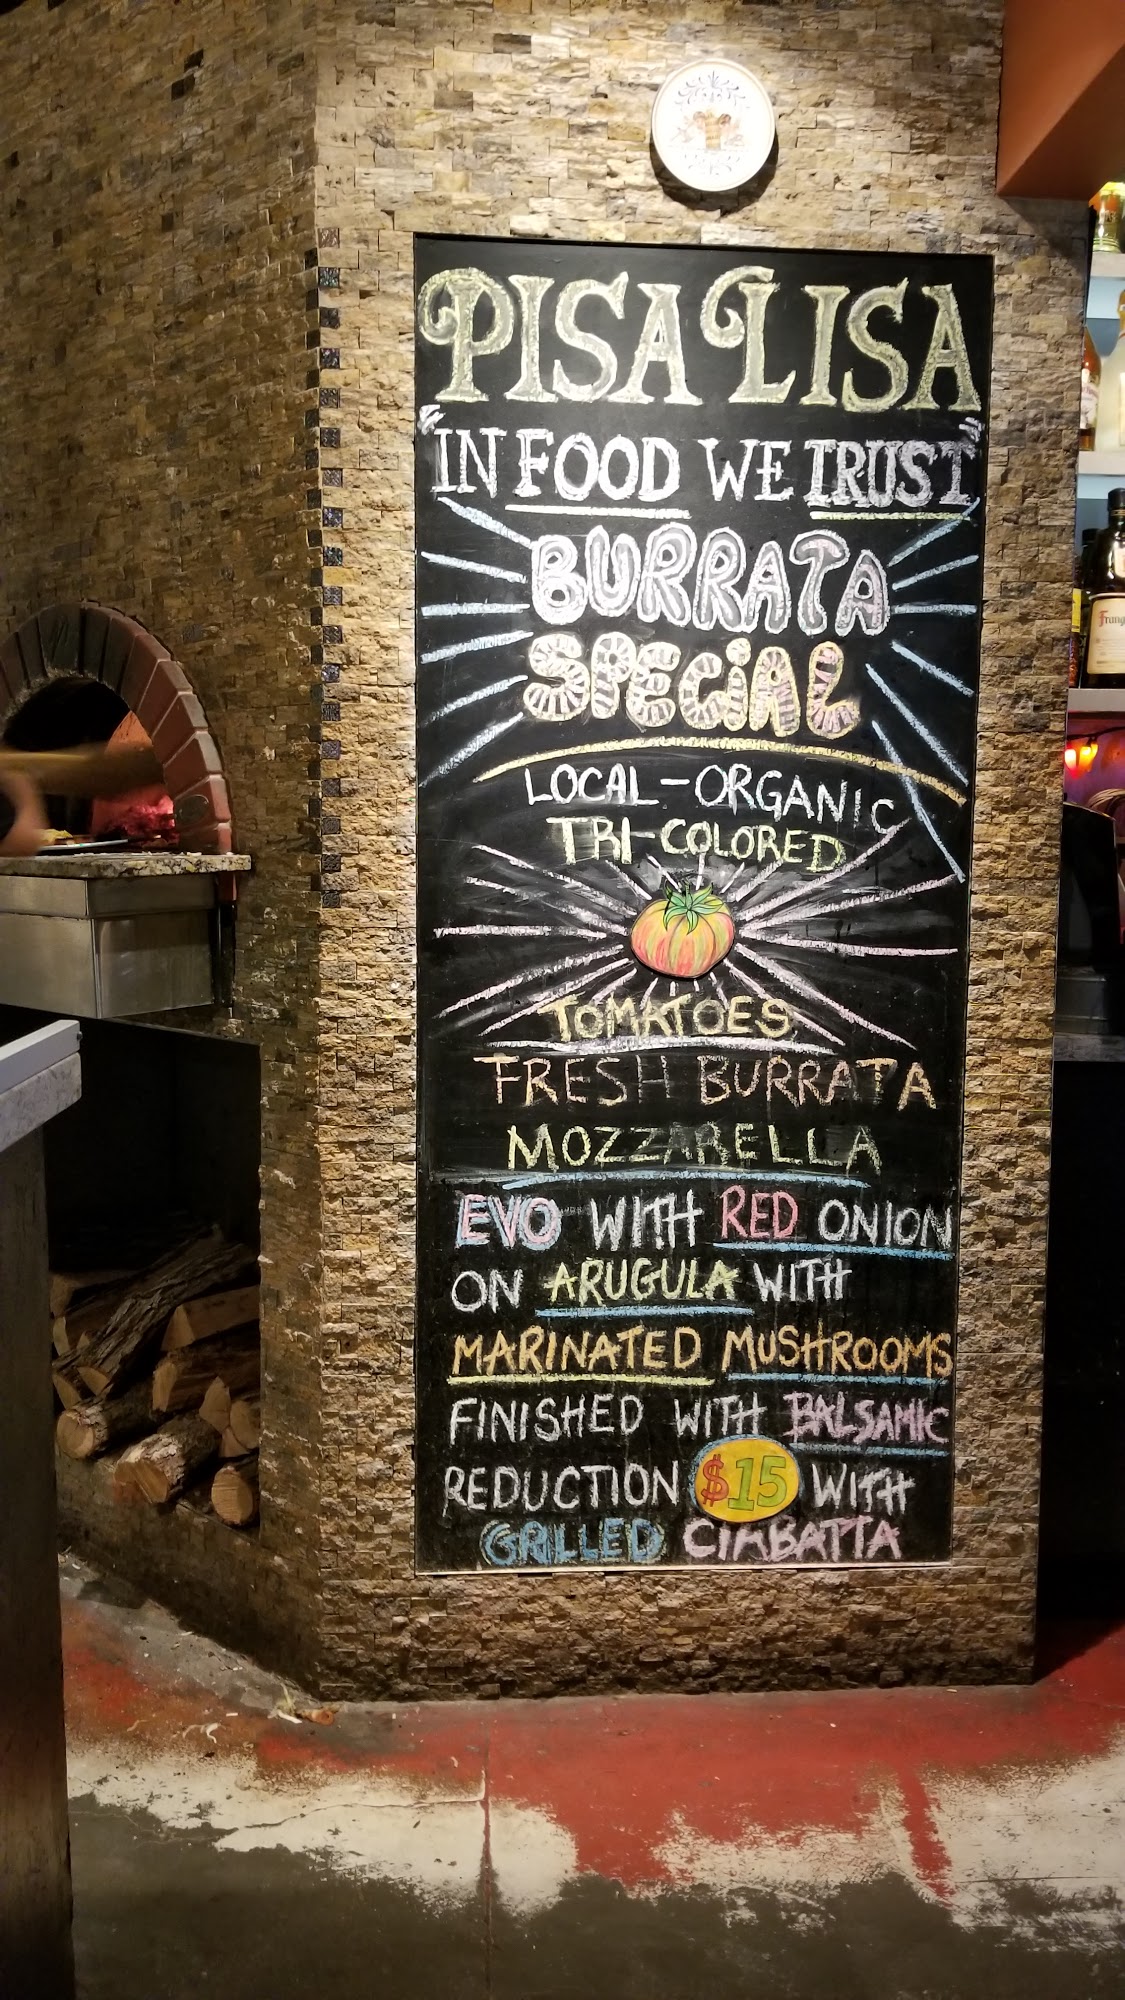 PISA LISA
"IN FOOD WE TRUST"
BURRATA
SPECiAL
LOCAL-ORGANIC
TRI-COLORED
TOMATOES
FRESH BURRATA
MOZZARELLA
EVO WITH RED ONION
ON ARUGULA WITH
MARINATED MUSHROOMS
FINISHED WITH BALSAMIC
REDUCTION $15 WITH
GRILLED CIABATTA